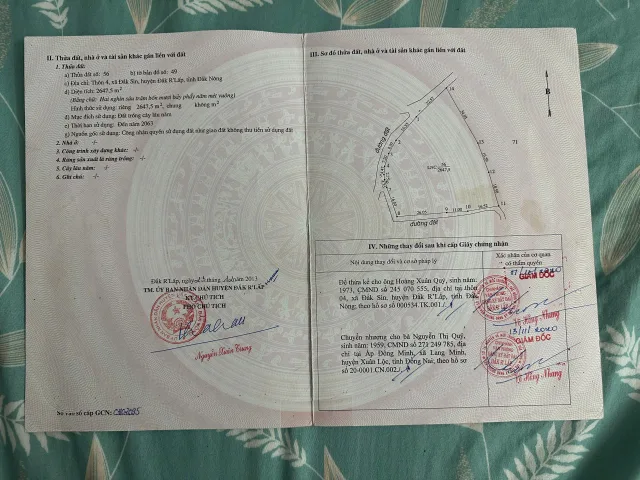 II. Thửa đất, nhà ở và tài sản khác gắn liền với đất
1. Thửa đất:
a) Thửa đất số: 56 b) tờ bản đồ số: 49
c) Địa chỉ: Thôn 4, xã Đắk Sin, huyện Đắk R'Lấp, tỉnh Đắk Nông
d) Diện tích: 2647,5 m²
(Bằng chữ: Hai nghìn sáu trăm bốn mươi bảy phẩy năm mét vuông)
Hình thức sử dụng: riêng 2647,5 m², chung không m²
đ) Mục đích sử dụng: Đất trồng cây lâu năm
e) Thời hạn sử dụng: Đến năm 2063
g) Nguồn gốc sử dụng: Công nhận quyền sử dụng đất như giao đất không thu tiền sử dụng đất
2. Nhà ở: -/-
3. Công trình xây dựng khác: -/-
4. Rừng sản xuất là rừng trồng: -/-
5. Cây lâu năm: -/-
6. Ghi chú: -/-
Đắk R'Lấp, ngày tháng năm 2013
TM. ỦY BAN NHÂN DÂN HUYỆN ĐẮK R'LẤP
KT. CHỦ TỊCH
PHÓ CHỦ TỊCH
Nguyễn Xuân Trung
Số vào sổ cấp GCN:
III. Sơ đồ thửa đất, nhà ở và tài sản khác gắn liền với đất
B
đường đất
71
56
2647,5
đường đất
IV. Những thay đổi sau khi cấp Giấy chứng nhận
Nội dung thay đổi và cơ sở pháp lý
Xác nhận của cơ quan
có thẩm quyền
Để thừa kế cho ông Hoàng Xuân Quý, sinh năm
1973, CMND số 245 070 555, địa chỉ tại thôn
04, xã Đắk Sin, huyện Đắk R'Lấp, tỉnh Đắk
Nông; theo hồ sơ số 000534.TK.001./.
GIÁM ĐỐC
Võ Hồng Nhang
Chuyển nhượng cho bà Nguyễn Thị Quý,
sinh năm: 1959, CMND số 273 249 785, địa
chỉ tại Ấp Đông Minh, xã Lang Minh,
huyện Xuân Lộc, tỉnh Đồng Nai; theo hồ sơ
số 20-0001.CN.002./.
13/11/2020
GIÁM ĐỐC
Võ Hồng Nhang